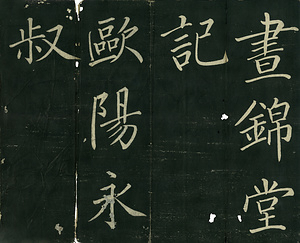 晝錦堂
記
歐陽永
叔